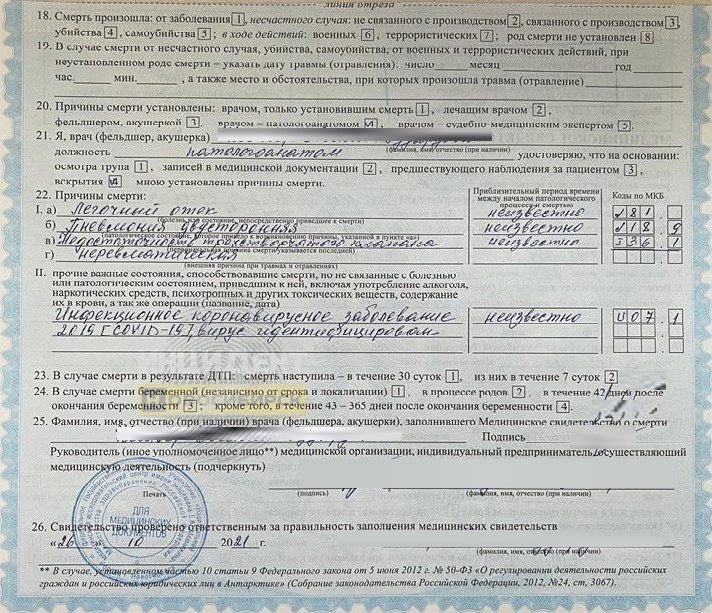 линия отреза
18. Смерть произошла: от заболевания 1, несчастного случая: не связанного с производством 2, связанного с производством 3,
убийства 4, самоубийства 5; в ходе действий: военных 6, террористических 7; род смерти не установлен 8
19. В случае смерти от несчастного случая, убийства, самоубийства, от военных и террористических действий, при
неустановленном роде смерти – указать дату травмы (отравления): число ______ месяц ______ год ______
час.______ мин. ______ , а также место и обстоятельства, при которых произошла травма (отравление)
20. Причины смерти установлены: врачом, только установившим смерть 1, лечащим врачом 2,
фельдшером, акушеркой 3, врачом – патологоанатомом 4, врачом – судебно-медицинским экспертом 5.
21. Я, врач (фельдшер, акушерка)
(фамилия, имя, отчество (при наличии)
должность патологоанатом удостоверяю, что на основании:
осмотра трупа 1, записей в медицинской документации 2, предшествующего наблюдения за пациентом 3,
вскрытия 4 мною установлены причины смерти.
22. Причины смерти: Приблизительный период времени между началом патологического процесса и смертью Коды по МКБ
I. а) Легочный отек неизвестно J81.
(болезнь или состояние, непосредственно приведшее к смерти)
б) Пневмония двусторонняя неизвестно J18 9
(патологическое состояние, которое привело к возникновению причины, указанной в пункте «а»)
в) Недостаточность трехстворчатого клапана неизвестно I36.1
(первоначальная причина смерти указывается последней)
г) неревматическая
(внешняя причина при травмах и отравлениях)
II. прочие важные состояния, способствовавшие смерти, но не связанные с болезнью
или патологическим состоянием, приведшим к ней, включая употребление алкоголя,
наркотических средств, психотропных и других токсических веществ, содержание
их в крови, а также операции (название, дата)
Инфекционное коронавирусное заболевание неизвестно U07.1
2019 [COVID-19], вирус идентифицирован
23. В случае смерти в результате ДТП: смерть наступила – в течение 30 суток 1, из них в течение 7 суток 2
24. В случае смерти беременной (независимо от срока и локализации) 1, в процессе родов 2, в течение 42 дней после
окончания беременности 3; кроме того, в течение 43 – 365 дней после окончания беременности 4.
25. Фамилия, имя, отчество (при наличии) врача (фельдшера, акушерки), заполнившего Медицинское свидетельство о смерти
Подпись
Руководитель (иное уполномоченное лицо**) медицинской организации, индивидуальный предприниматель, осуществляющий
медицинскую деятельность (подчеркнуть)
Печать (подпись) (фамилия, имя, отчество (при наличии)
ДЛЯ МЕДИЦИНСКИХ ДОКУМЕНТОВ
26. Свидетельство проверено ответственным за правильность заполнения медицинских свидетельств
«26 10 2021 г.
(фамилия, имя, отчество (при наличии)
** В случае, установленном 10 статьи 9 Федерального закона от 5 июня 2012 г. № 50-ФЗ «О регулировании деятельности российских
граждан и российских юридических лиц в Антарктике» (Собрание законодательства Российской Федерации, 2012, №24, ст, 3067).